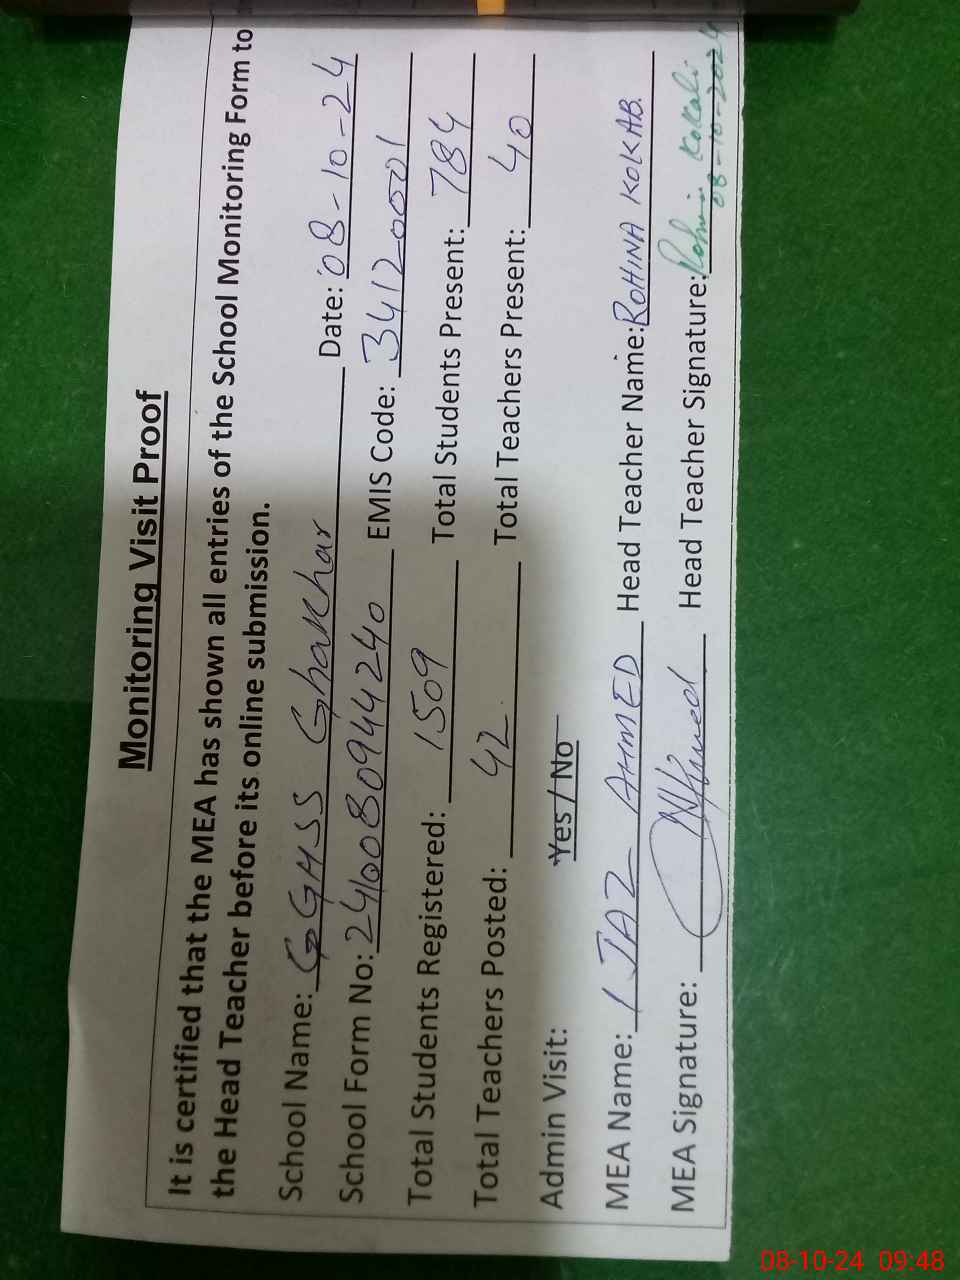 Monitoring Visit Proof
It is certified that the MEA has shown all entries of the School Monitoring Form to
the Head Teacher before its online submission.
School Name: GGHSS Ghakhar Date: 08-10-24
School Form No: 241008094424240 EMIS Code: 34120001
Total Students Registered: 1509 Total Students Present: 784
Total Teachers Posted: 42 Total Teachers Present: 40
Admin Visit: Yes / No
MEA Name: IJAZ AHMED Head Teacher Name: ROHINA KOKAB.
MEA Signature: Ahmed Head Teacher Signature: Rohina Kokab
08-10-2024
08-10-24 09:48